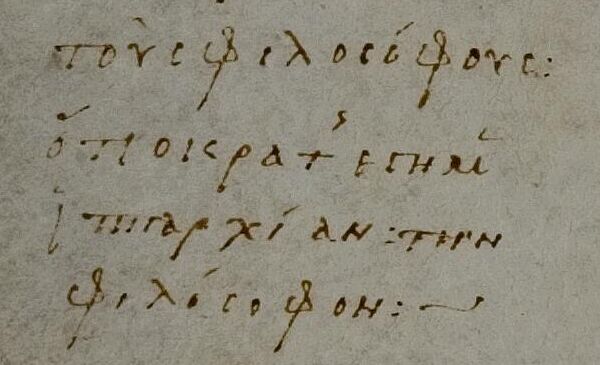 τοὺς φιλοσόφους:
ὅτι ο κρατˢ εγημ̀
ἱππαρχίαν: την
φιλόσοφον: ~